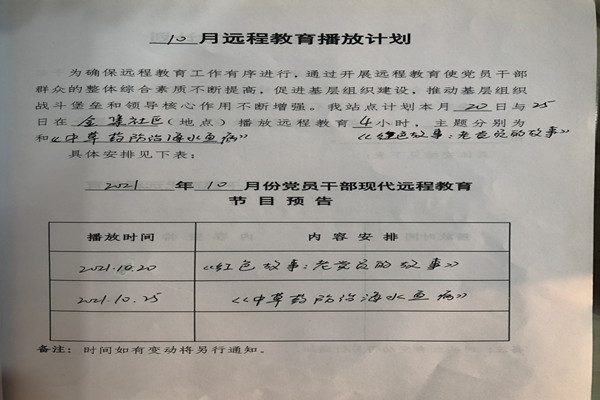 10月远程教育播放计划
为确保远程教育工作有序进行，通过开展远程教育使党员干部
群众的整体综合素质不断提高，促进基层组织建设，推动基层组织
战斗堡垒和领导核心作用不断增强。我站点计划本月20日与25
日在金集社区（地点）播放远程教育4小时，主题分别为《红色故事：老党员的故事》
和《中草药防治海水鱼病》
具体安排见下表：
2021年10月份党员干部现代远程教育
节目预告
播放时间 内容安排
2021.10.20 《红色故事：老党员的故事》
2021.10.25 《中草药防治海水鱼病》
备注：时间如有变动将另行通知。